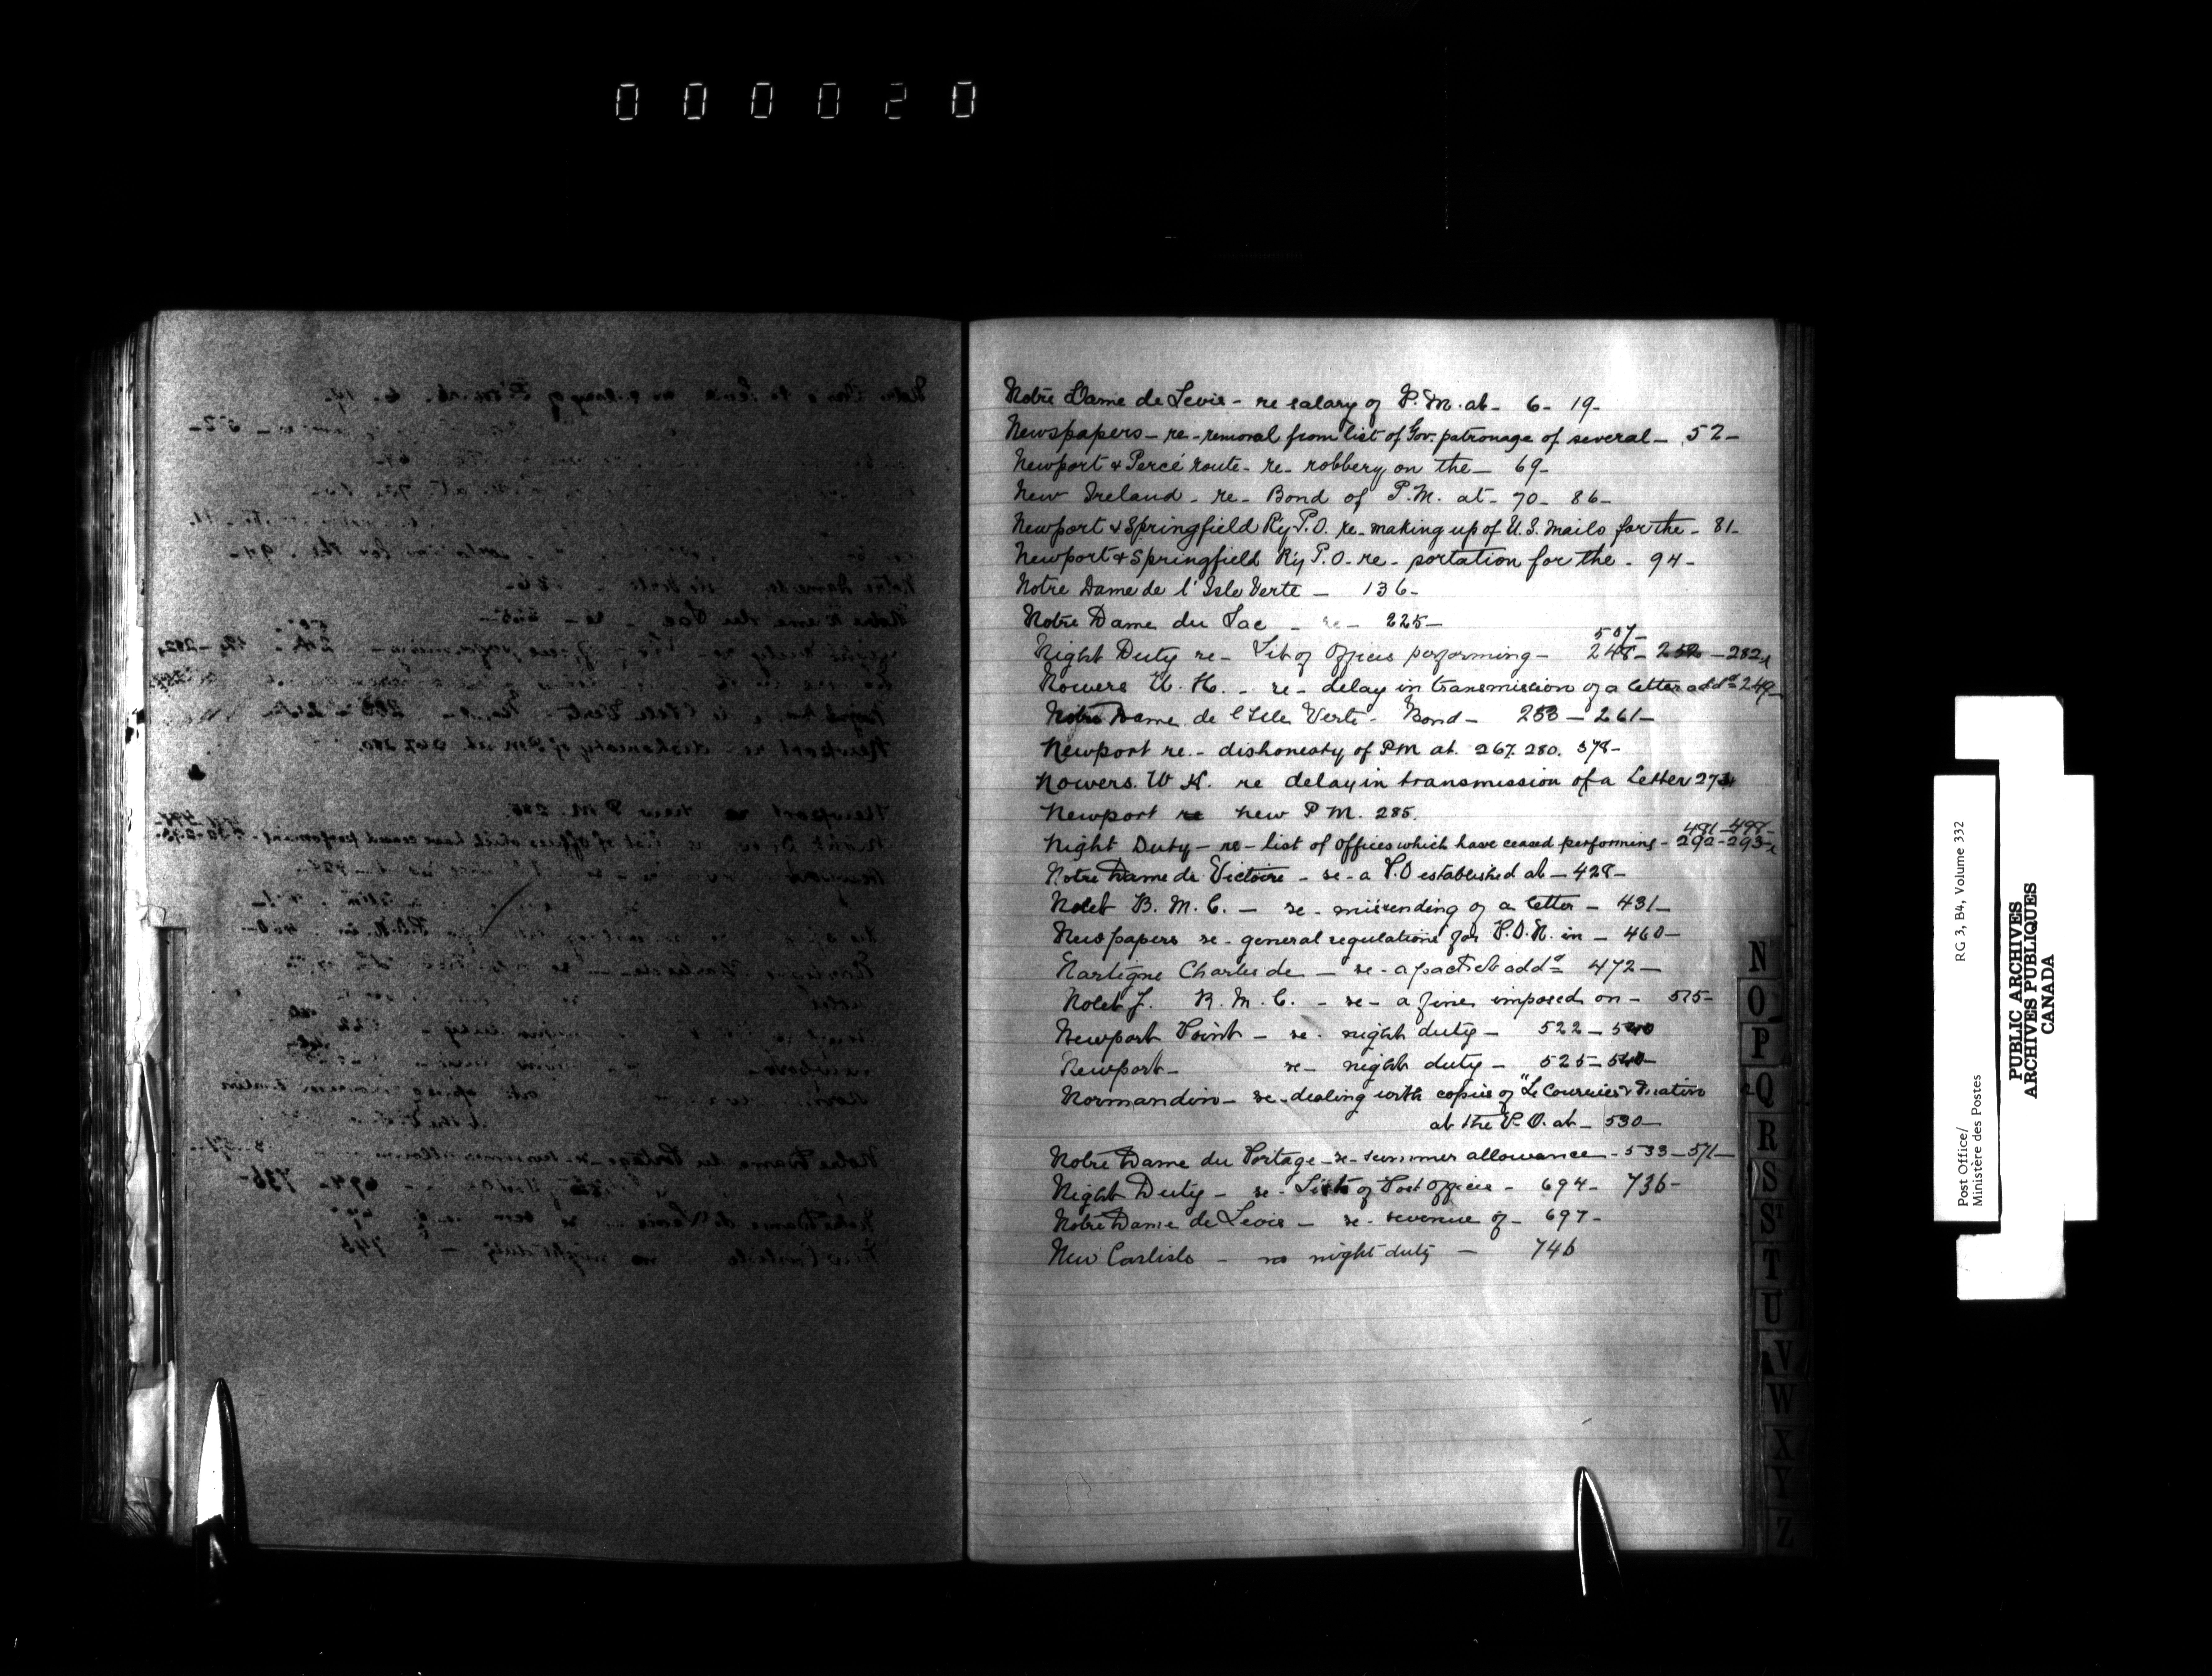 000020
Notre Dame de Levis - re salary of P.M. at - 6 - 19 -
Newspapers - re - removal from list of Gov. patronage of several - 52 -
Newport & Percé route - re - robbery on the - 69 -
New Ireland - re - Bond of P.M. at - 70 - 86 -
Newport & Springfield Ry P.O. re - making up of U.S. mails for the - 81 -
Newport & Springfield Ry P.O. - re - portation for the - 94 -
Notre Dame de l'Isle Verte - 136 -
Notre Dame du Lac - re - 225 -
507 -
Night Duty re - List of Offices performing - 248 - 252 - 282
Nowers W. H. - re - delay in transmission of a letter addd 249
Notre Dame de l'Isle Verte - Bond - 253 - 261 -
Newport re. - dishonesty of PM at. 267. 280. 378 -
Nowers. W H. re delay in transmission of a Letter 27
Newport re new P M. 285.
481 - 498 -
Night Duty - re - list of offices which have ceased performing - 292 - 293
Notre Dame de Victoire - re - a P.O established at - 428 -
Nolet R. M. C. - re - missending of a letter - 431 -
Newspapers re - general regulations for P.O.N. in - 460 -
Nartigne Charles de - re - a packet addd 472 -
Nolet J. R. M. C. - re - a fine imposed on - 515 -
Newport Point - re - night duty - 522 - 540
Newport - re - night duty - 525 - 540 -
Normandin - re - dealing with copies of "Le Courrier &
at the P.O. at - 530 -
Notre Dame du Portage - re - summer allowance - 533 - 571 -
Night Duty - re - Lists of Post Offices - 694 - 736 -
Notre Dame de Levis - re - revenue of - 697 -
New Carlisle - re night duty - 746
N
O
P
Q
R
S
ST
T
U
V
W
X
Y
Z
Post Office/
Ministère des Postes
RG 3, B4, Volume 332
PUBLIC ARCHIVES
ARCHIVES PUBLIQUES
CANADA